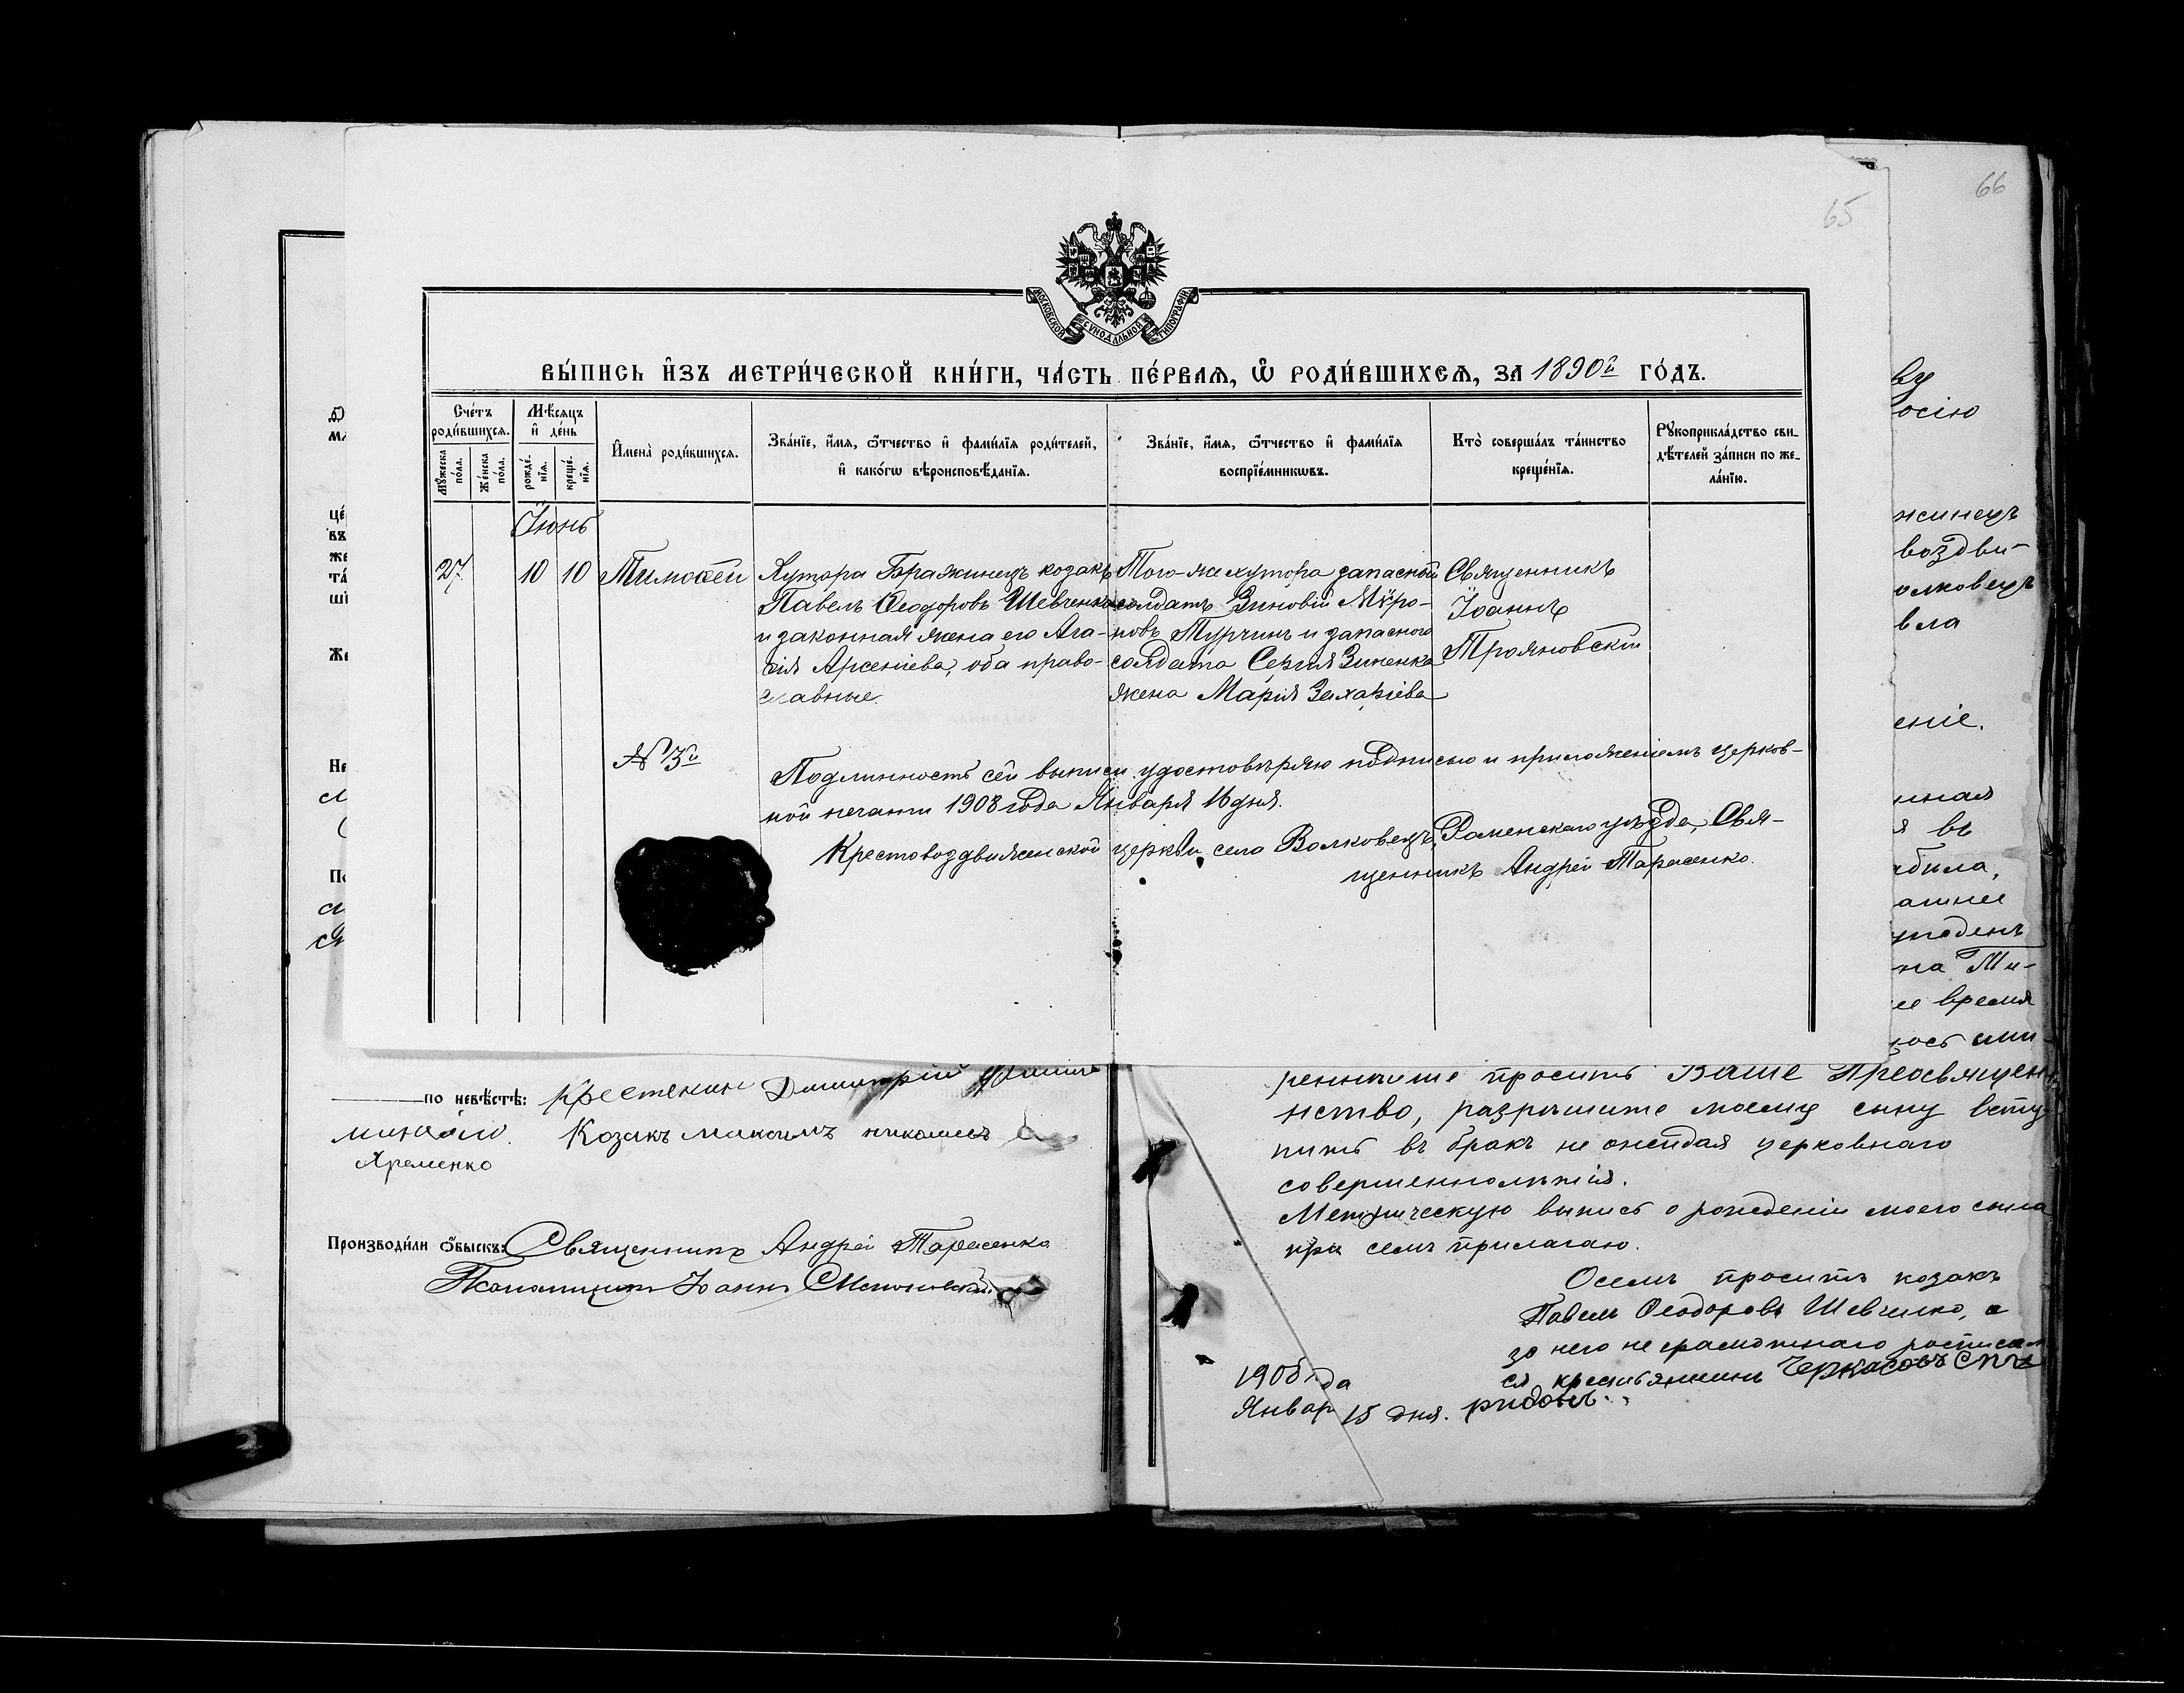 65
66
МОСКОВСКОЙ СѴНОДАЛЬНОЙ ТИПОГРАФІИ
ВЫ́ПИСЬ И҆ЗЪ МЕТРИ́ЧЕСКОЙ КНИ́ГИ, ЧА́СТЬ ПЕ́РВАѦ, Ѽ РОДИ́ВШИХСѦ, ЗА 1890й ГО́ДЪ.
Сче́тъ роди́вшихсѧ.
Мꙋ́жеска по́ла.
Же́нска по́ла.
Мѣ́сѧцъ и҆ де́нь
рожде́нїѧ.
креще́нїѧ.
И҆мена̀ роди́вшихсѧ.
Зва́нїе, и҆́мѧ, ѻ҆́тчество и҆ фами́лїѧ роди́телей,
и҆ како́гѡ вѣроисповѣ́данїѧ.
Зва́нїе, и҆́мѧ, ѻ҆́тчество и҆ фами́лїѧ
воспрїе́мникѡвъ.
Кто̀ соверша́лъ та́инство
креще́нїѧ.
Рꙋкоприкла́дство сви-
дѣ́телей за́писи по же-
ла́нїю.
Іюнь
27
10
10
Тимоѳей
Хутора Бражинецъ козакъ
Павелъ Ѳеодоровъ Шевченко
и законная жена его Ага-
ѳія Арсеніева, оба право-
славные.
Того-же хутора запасный
солдатъ Зиновій Мѵро-
новъ Турчинъ и запасного
солдата Сергія Зиненка
жена Марія Захаріева
Священникъ
Іоаннъ
Трояновскій
№ 3й
Подлинность сей выписи удостовѣряю подписью и приложеніемъ церков-
ной печати 1908 года Января 16 дня.
Крестовоздвиженской церкви села Волковецъ, Роменскаго уѣзда, Свя-
щенникъ Андрей Тарасенко.
ву
осію
жинецъ
воздви-
олковецъ
вла
еніе.
нная
я въ
абила,
ашнее
ужденъ
на Ти-
ее время
юсь сми-
по невѣ́стѣ: Крестянин Дмитрій
Козакъ Максимъ
Яременко
Производи́ли ѻ҆́быскъ: Священникъ Андрей Тарасенко
Псаломщикъ Іоаннъ
реннѣйше просить Ваше Преосвящен-
нство, разрѣшите моему сыну всту-
пить въ бракъ не ожидая церковнаго
совершеннолѣтія.
Метрическую выпись о рожденіи моего сына
при семъ прилагаю.
О семъ проситъ козакъ
Павелъ Ѳеодоровъ Шевченко, а
за него не грамотнаго росписал
ся крестьянинъ Черкасовъ Спи
ридонъ.
1908 года
Январ 15 дня.